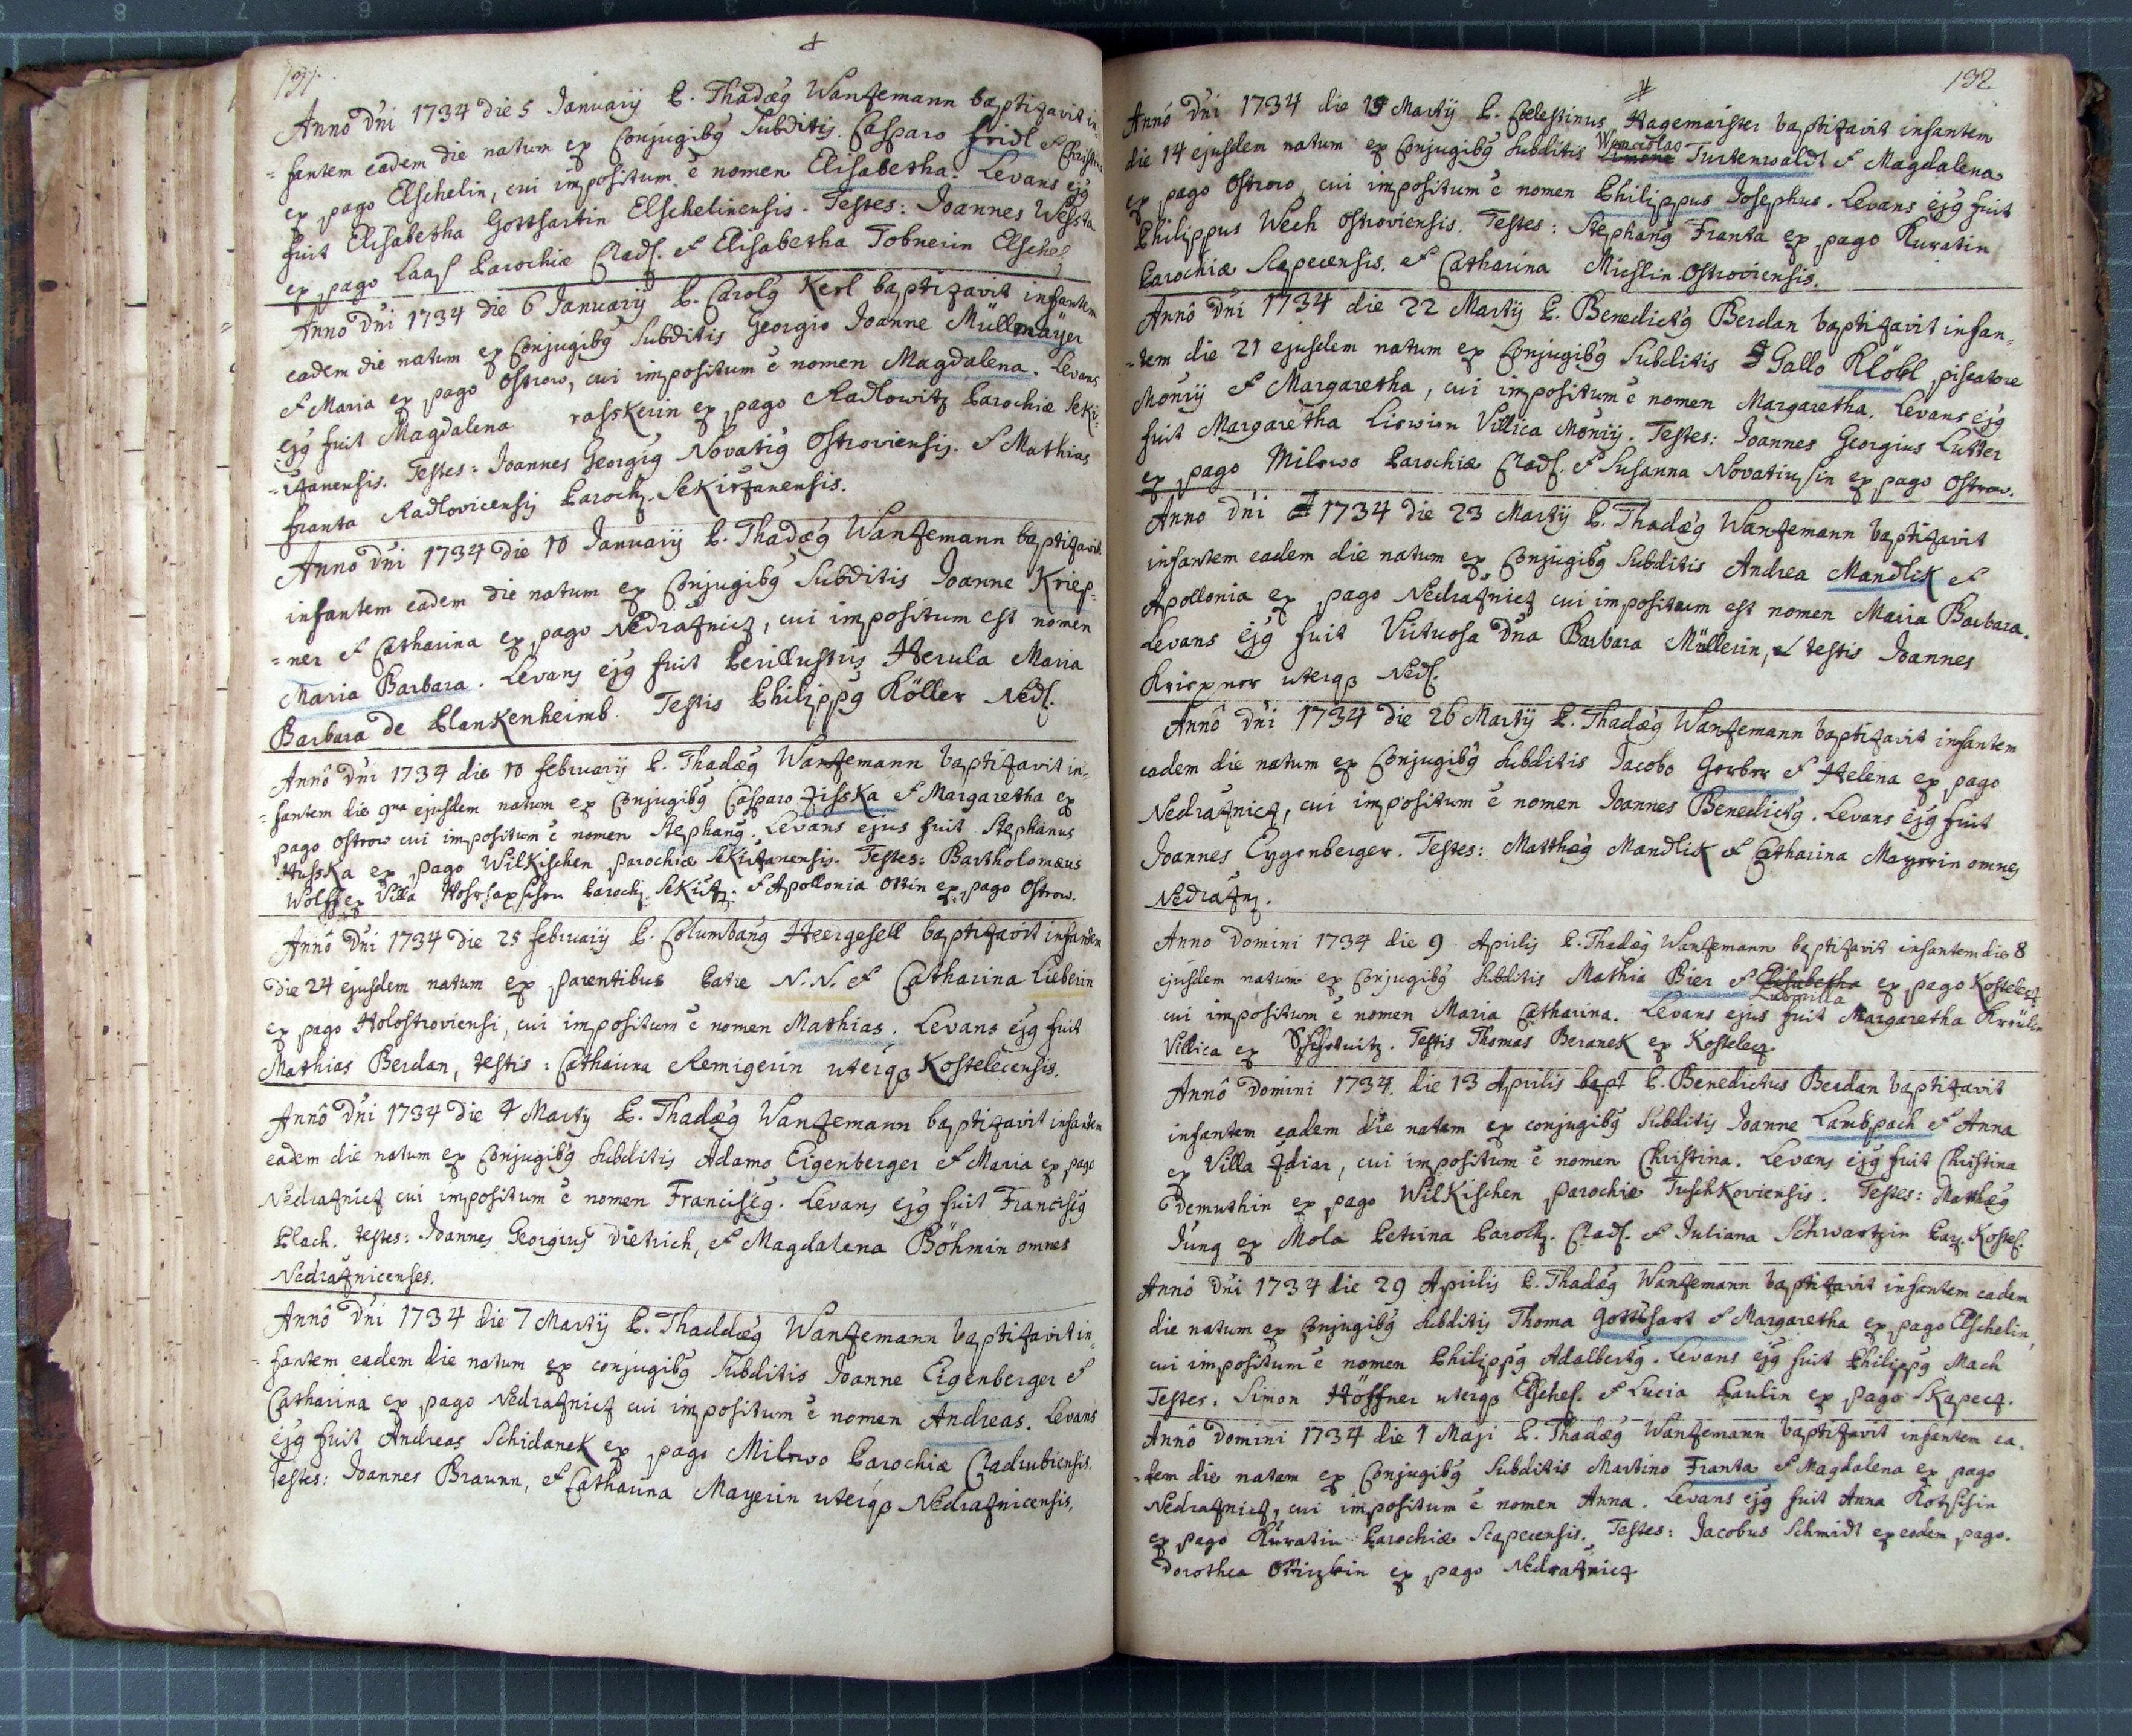 191.
Anno Dñi 1734 die 5 Januarij P. Thadæg Wantzemann baptizavit in=
=fantem eadem die natum ex Conjugibg Subditis Casparo Fridl et Christina
ex pago Elschelin, cui impositum ē nomen Elisabetha. Levans ejg
fuit Elisabetha Gottsartin Elschelinensis. Testes: Joannes Wessta
ex pago Laas Parochiæ Clad. et Elisabetha Tobnerin Elschel
Anno Dñi 1734 die 6 Januarij P. Carolg Kerl baptizavit infantem
eadem die natum ex Conjugibg Subditis Georgio Joanne Müllmaÿer
et Maria ex pago Ostrow, cui impositum ē nomen Magdalena. Levans
ejg fuit Magdalena rasskerin ex pago Radlowitz Parochiæ Seki=
=rzanensis. Testes: Joannes Georgig Novatig Ostroviensis. et Mathias
Franta Radlovicensis Paroch. Sekirzanensis.
Anno Dñi 1734 die 10 Januarij P. Thadæg Wantzemann baptizavit
infantem eadem die natum ex Conjugibg Subditis Joanne Kriep=
=ner et Catharina ex pago Nedraznicz, cui impositum est nomen
Maria Barbara. Levans ejg fuit Perillustris Herula Maria
Barbara de Plankenheimb. Testis Philippg Köller Ned.
Annô Dñi 1734 die 10 februarij P. Thadæg Wantzemann baptizavit in=
=fantem die 9na ejusdem natum ex Conjugibg Casparo Zisska et Margaretha ex
pago Ostrow cui impositum ē nomen Stephang. Levans ejus fuit Stephanus
Husska ex pago Wilkischen parochiæ Sekirzanensis. Testes: Bartholomæus
Wolff ex Villa Paroch. Sekirz. et Apollonia Ottin ex pago Ostrow.
Annô Dñi 1734 die 25 februarij P. Columbang Heergesell baptizavit infantem
die 24 ejusdem natum ex parentibus Patre N.N. et Catharina Lieberin
ex pago Holostroviensi, cui impositum ē nomen Mathias. Levans ejg fuit
Mathias Berdan, testis: Catharina Remigerin uterqȝ Kostelecensis.
Annô Dñi 1734 die 4 Martij P. Thadæg Wantzemann baptizavit infantem
eadem die natum ex Conjugibg Subditis Adamo Eigenberger et Maria ex pago
Nedraznicz cui impositum ē nomen FrancisCg. Levans ejg fuit Franciscg
Plach. testes: Joannes Georgius Dietrich, et Magdalena Böhmin omnes
Nedraznicenses.
Annô Dñi 1734 die 7 Martij P. Thaddæg Wantzemann baptizavit in=
=fantem eadem die natum ex conjugibg Subditis Joanne Eigenberger et
Catharina ex pago Nedraznicz cui impositum ē nomen Andreas. Levans
ejg fuit Andreas Schidanek ex pago Milowo Parochiæ Cladrubiensis.
Testes: Joannes Braunn, et Catharina Mayerin uterqȝ Nedraznicensis.
192
Annô Dñi 1734 die 15 Martij P. Cœlestinus Hagemaister baptizavit infantem
die 14 ejusdem natum ex Conjugibg Subditis Wenceslao Simone Turtenwaldt et Magdalena
ex pago Ostrow, cui impositum ē nomen Philippus Josephus. Levans ejg fuit
Philippus Wech Ostroviensis. Testes: Stephang Franta ex pago Kuratin
Parochiæ Scapecensis. et Catharina Mislin Ostroviensis.
Annô Dñi 1734 die 22 Martij P. Benedictg Berdan baptizavit infan=
=tem die 21 ejusdem natum ex Conjugibg Subditis Gallo Klöbl piscatore
Monrij et Margaretha, cui impositum ē nomen Margaretha. Levans ejg
fuit Margaretha Liswien Villica Monrij. Testes: Joannes Georgius Lutter
ex pago Milowo Parochiæ Clad. et Susanna Novatiussin ex pago Ostrow.
Anno Dñi 1734 die 23 Martij P. Thadæg Wantzemann baptizavit
infantem eadem die natum ex Conjugibg Subditis Andrea Mandlik et
Apollonia ex pago Nedraznicz cui impositum est nomen Maria Barbara.
Levans ejg fuit Virtuosa Dña Barbara Müllerin, et testis Joannes
Kriepner uterqȝ Ned.
Annô Dñi 1734 die 26 Martij P. Thadæg Wantzemann baptizavit infantem
eadem die natum ex Conjugibg Subditis Jacobo Gerber et Helena ex pago
Nedraznicz, cui impositum ē nomen Joannes Benedictg. Levans ejg fuit
Joannes Eygenberger. Testes: Matthæg Mandlik et Catharina Mayerin omnes
Nedrazn.
Anno Domini 1734 die 9 Aprilis P. Thadæg Wantzemann baptizavit infantem die 8
ejusdem natum ex Conjugibg Subditis Mathia Bier et Elisabetha Ludmilla ex pago Kostelecz
cui impositum ē nomen Maria Catharina. Levans ejus fuit Margaretha Kreülin
Villica ex . Testis Thomas Beranek ex Kostelecz.
Annô Domini 1734. die 13 Aprilis bapt P. Benedictus Berdan baptizavit
infantem eadem die natam ex conjugibg Subditis Joanne Lambpach et Anna
ex Villa Zdiar, cui impositum ē nomen Christina. Levans ejg fuit Christina
Demuthin ex pago Wilkischen parochiæ Tuschkoviensis. Testes: Matthæg
Jung ex Mola Petrina Paroch. Clad. et Juliana Schwartzin Par. Kostel.
Annô Dñi 1734 die 29 Aprilis P. Thadæg Wantzemann baptizavit infantem eadem
die natum ex Conjugibg Subditis Thoma Gotthart et Margaretha ex pago Elschelin,
cui impositum ē nomen Philippg Adalbertg. Levans ejg fuit Philippg Mach
Testes. Simon Höffner uterqȝ Elschel. et Lucia Paulin ex pago Skapecz.
Annô Domini 1734 die 1 Maji P. Thadæg Wantzemann baptizavit infantem ea=
=dem die natam ex Conjugibg Subditis Martino Franta et Magdalena ex pago
Nedraznicz, cui impositum ē nomen Anna. Levans ejg fuit Anna
ex pago Kuratin Parochiæ Scapecensis. Testes: Jacobus Schmidt ex eodem pago.
Dorothea ex pago Nedraznicz